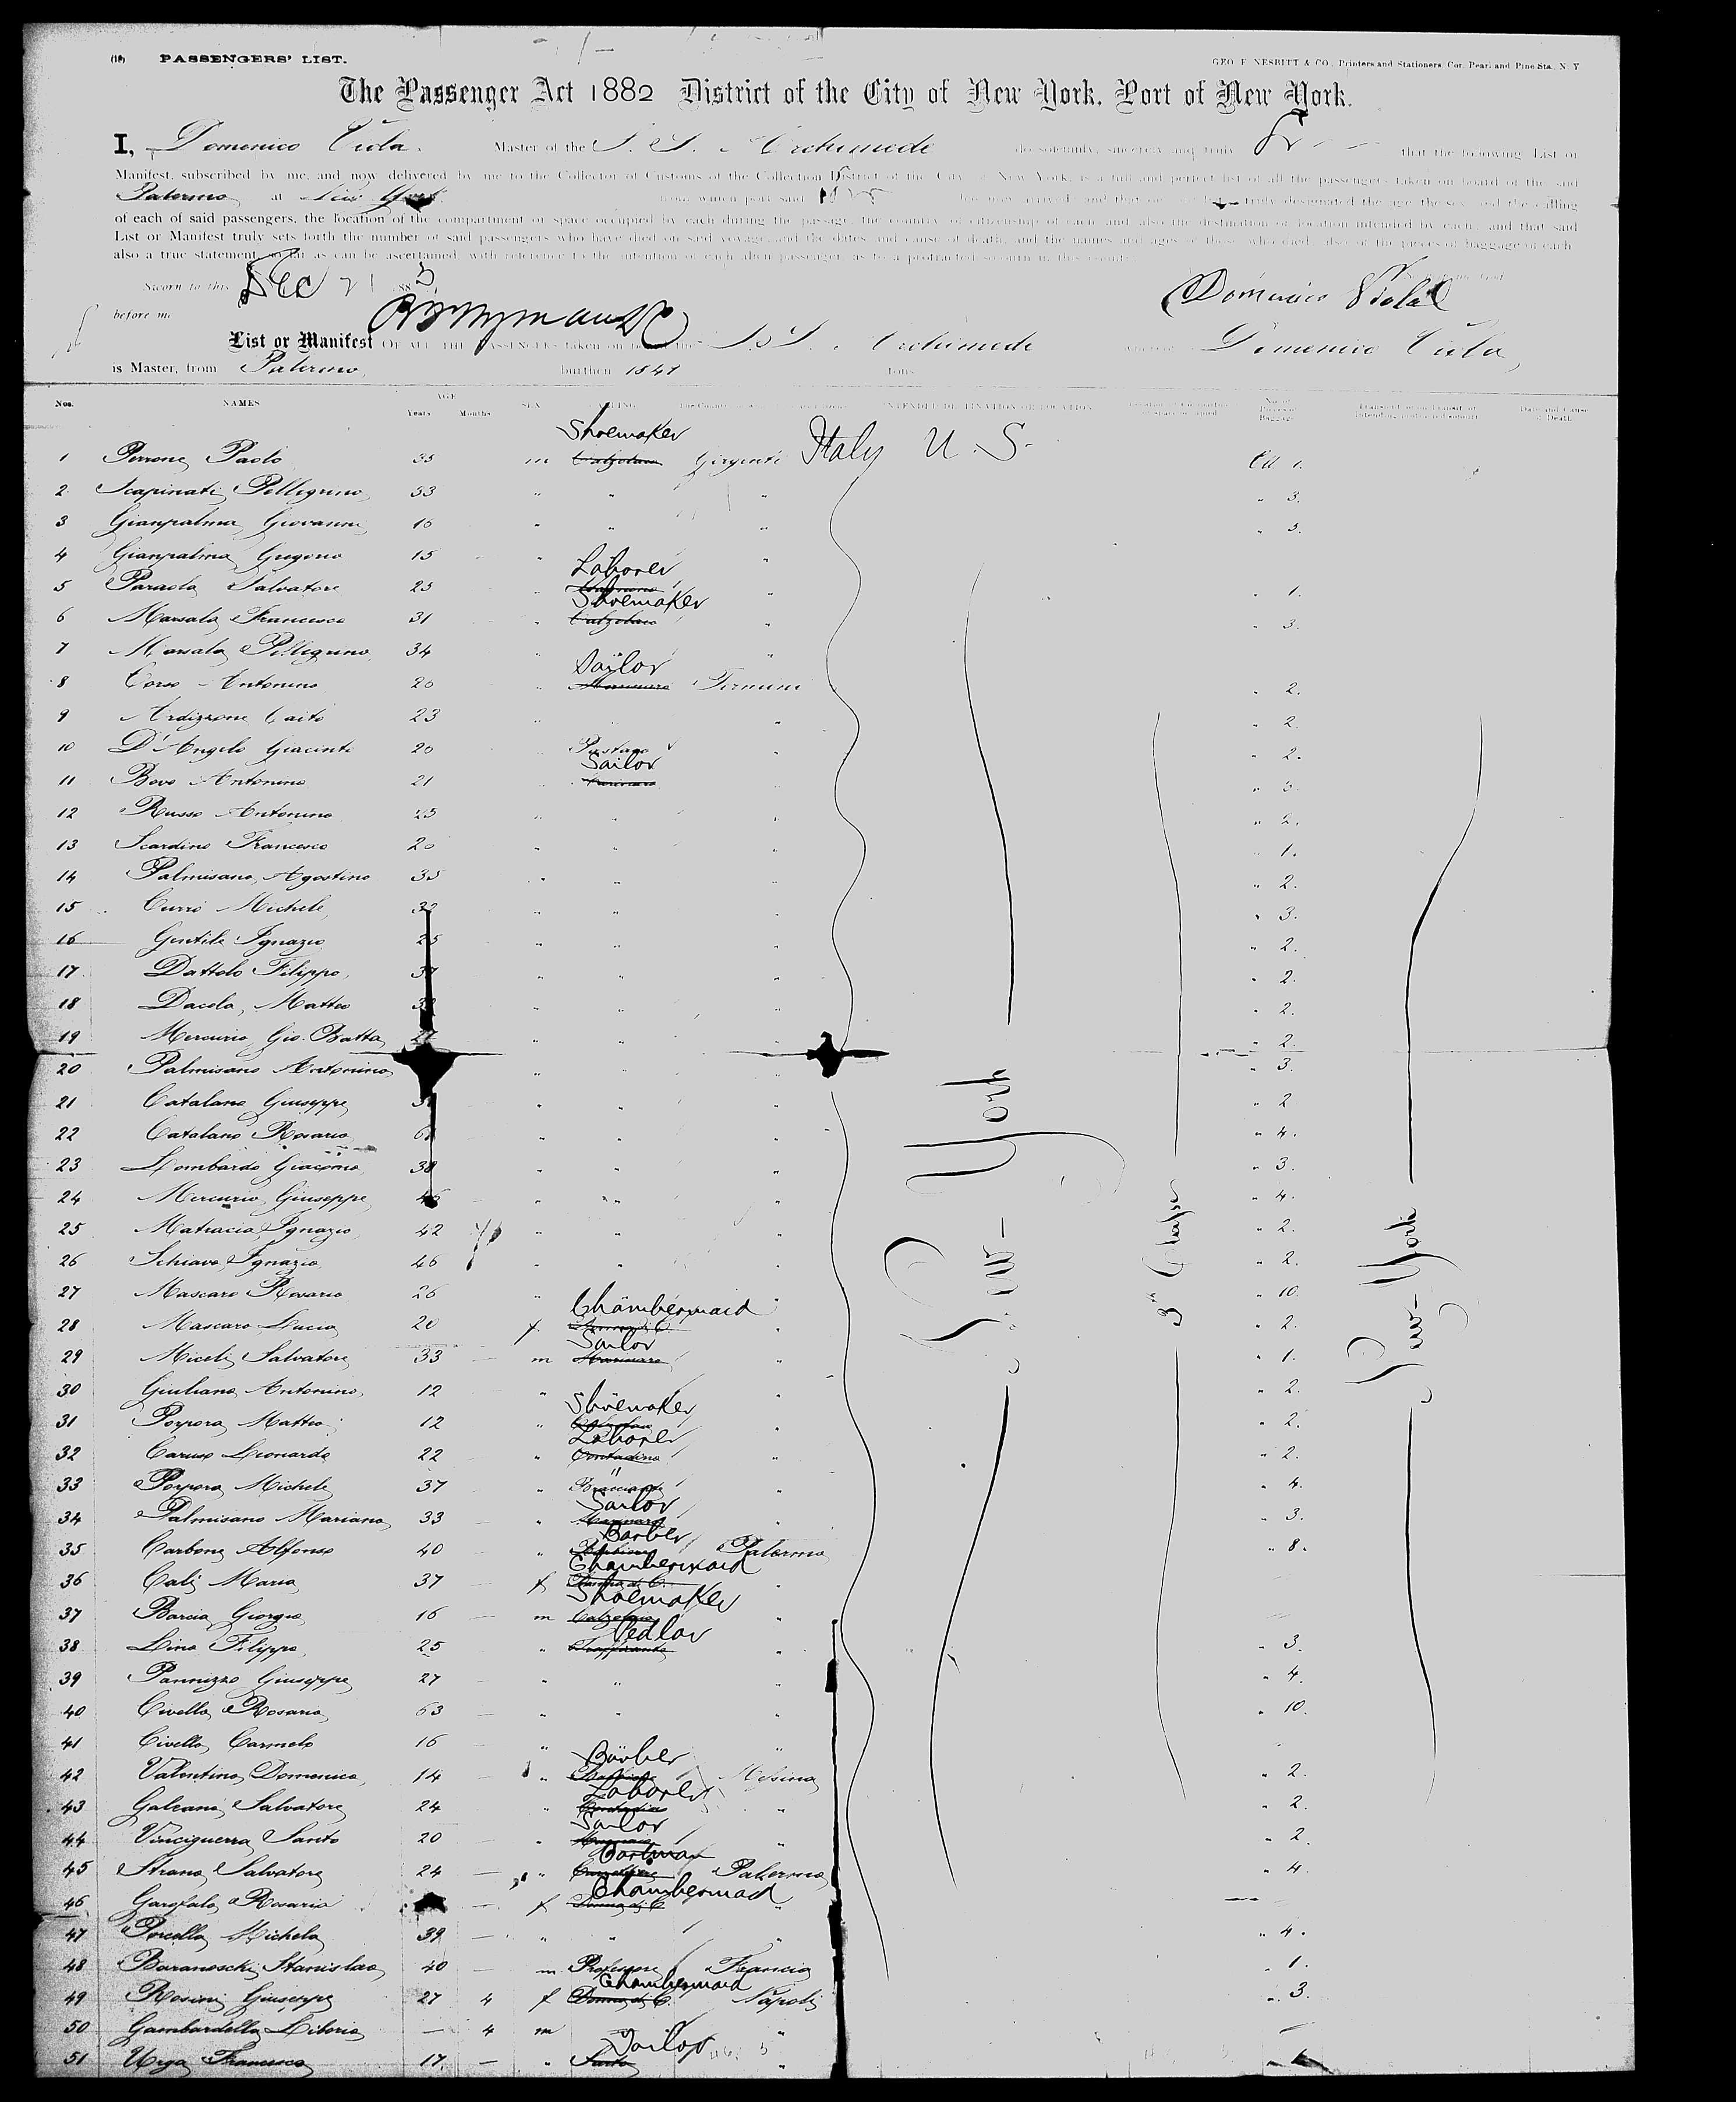 (18) PASSENGERS' LIST.
GEO. F. NESBITT & CO., Printers and Stationers, Cor. Pearl and Pine Sts., N. Y.
The Passenger Act 1882 District of the City of New York, Port of New York.
I, Domenico Viola Master of the S. S. Archimede do solemnly, sincerely and truly that the following List or
Manifest, subscribed by me, and now delivered by me to the Collector of Customs of the Collection District of the City of New York, is a full and perfect list of all the passengers taken on board of the said
Palermo at New York from which port said
of each of said passengers, the location of the compartment or space occupied by each during the passage, the country of citizenship of each and also the destination or location intended by each, and that said
List or Manifest truly sets forth the number of said passengers who have died on said voyage, and the dates and cause of death, and the names and ages of those who died, also of the pieces of baggage of each
also a true statement, so far as can be ascertained, with reference to the intention of each alien passenger, as to a protracted sojourn in this country.
Sworn to this Dec 21 1885
Domenico Viola
before me
List or Manifest OF ALL THE PASSENGERS taken on board the S. S. Archimede whereof Domenico Viola,
is Master, from Palermo, burthen 1841 tons
Nos. NAMES AGE Years Months SEX CALLING INTENDED DESTINATION OR LOCATION No. of Pieces of Baggage Date and Cause of Death
Shoemaker
1 Perrone Paolo 35 m Calzolaio Girgenti Italy U. S. 1.
2 Scapinati Pellegrino 33 " " " " 3.
3 Gianpalma Giovanni 16 " " " " 3.
4 Gianpalma Gregorio 15 " "
Laborer
5 Paraola Salvatore 25 " " 1.
Shoemaker
6 Marsala Francesco 31 " Calzolaio " " 3.
7 Marsala Pellegrino 34 " " "
Sailor
8 Corso Antonino 20 " Marinaro Termini " 2.
9 Ardizzone Caito 23 " " " 2.
10 D'Angelo Giacinto 20 Pastaio " " 2.
Sailor
11 Bova Antonino 21 " Marinaro " " 3.
12 Russo Antonino 25 " " " " 2.
13 Scardino Francesco 20 " " " " 1.
14 Palmisano Agostino 35 " " " " 2.
15 Currò Michele 32 " " " " 3.
16 Gentile Ignazio 25 " " " " 2.
17 Dattolo Filippo 37 " " " " 2.
18 Dacola, Matteo " " " " 2.
19 Mercurio Gio. Batta " " " " 2.
20 Palmisano Antonino " " " " 3.
21 Catalano Giuseppe " " " " 2
22 Catalano Rosario " " " " 4.
23 Lombardo Giacomo 38 " " " " 3.
24 Mercurio Giuseppe " " " " 4.
25 Matracia Ignazio 42 " " " " 2.
26 Schiavo Ignazio 46 " " " " 2.
27 Mascaro Rosario 26 " " " 10.
Chambermaid
28 Mascaro Lucia 20 f Donna di C. " " 2.
Sailor
29 Miceli Salvatore 33 — m Marinaro " " 1.
30 Giuliano Antonino 12 " " 2.
Shoemaker
31 Porpora Matteo 12 " Calzolaio " " 2.
Laborer
32 Caruso Leonardo 22 " Contadino " " 2.
"
33 Porpora Michele 37 " Bracciante " " 4.
Sailor
34 Palmisano Mariano 33 — " Marinaro " " 3.
Barber
35 Carbone Alfonso 40 — " Barbiere Palermo " 8.
Chambermaid
36 Calì Maria 37 — f Donna di C. "
Shoemaker
37 Barcia Giorgio 16 — m Calzolaio "
Pedlar
38 Lino Filippo 25 — " Trafficante " " 3.
39 Pannizzo Giuseppe 27 — " " " " 4.
40 Civello Rosario 63 — " " " " 10.
41 Civello Carmelo 16 — " "
Barber
42 Valentino Domenico 14 — " Barbiere Messina " 2.
Laborer
43 Galeano Salvatore 24 " Contadino " " 2.
Sailor
44 Vinciguerra Santo 20 — " Marinaro " " 2.
Cartman
45 Strano Salvatore 24 — " Carrettiere Palermo " 4.
Chambermaid
46 Garofalo Rosaria — f Donna di C. "
47 Porcella Michela 39 — " " " " 4.
48 Baranoschi Stanislao 40 — m Professore Francia " 1.
Chambermaid
49 Rosini Giuseppa 27 4 f Donna di C. Napoli " 3.
50 Gambardella Liborio — 4 m — "
Tailor
51 Urga Francesco 17 — " Sarto "
New-York
3rd Class
New-York